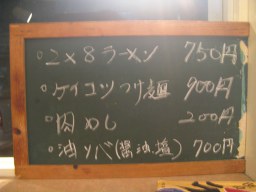 ○2×8ラーメン 750円
○ケイコツつけ麺 900円
○肉めし 200円
○油ソバ(醤油塩) 700円